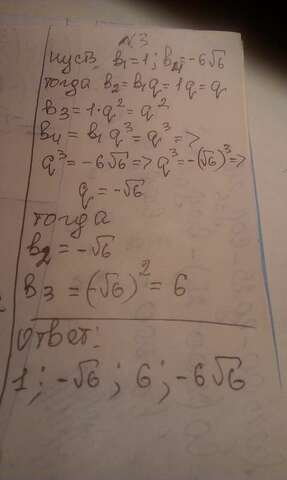 №3
пусть b₁=1; b₄=-6√6
тогда b₂=b₁q=1q=q
b₃=1·q²=q²
b₄=b₁q³=q³=>
q³=-6√6=>q³=-(√6)³=>
q=-√6
тогда
b₂=-√6
b₃=(-√6)²=6
ответ:
1; -√6; 6; -6√6